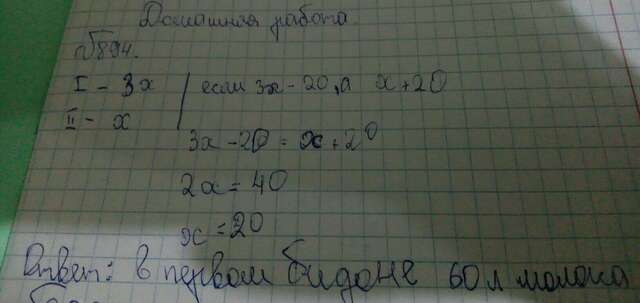 Домашная работа
№894.
I - 3x | если 3x - 20, а x + 20
II - x
3x - 20 = x + 20
2x = 40
x = 20
Ответ: в первом бидоне 60 л молока